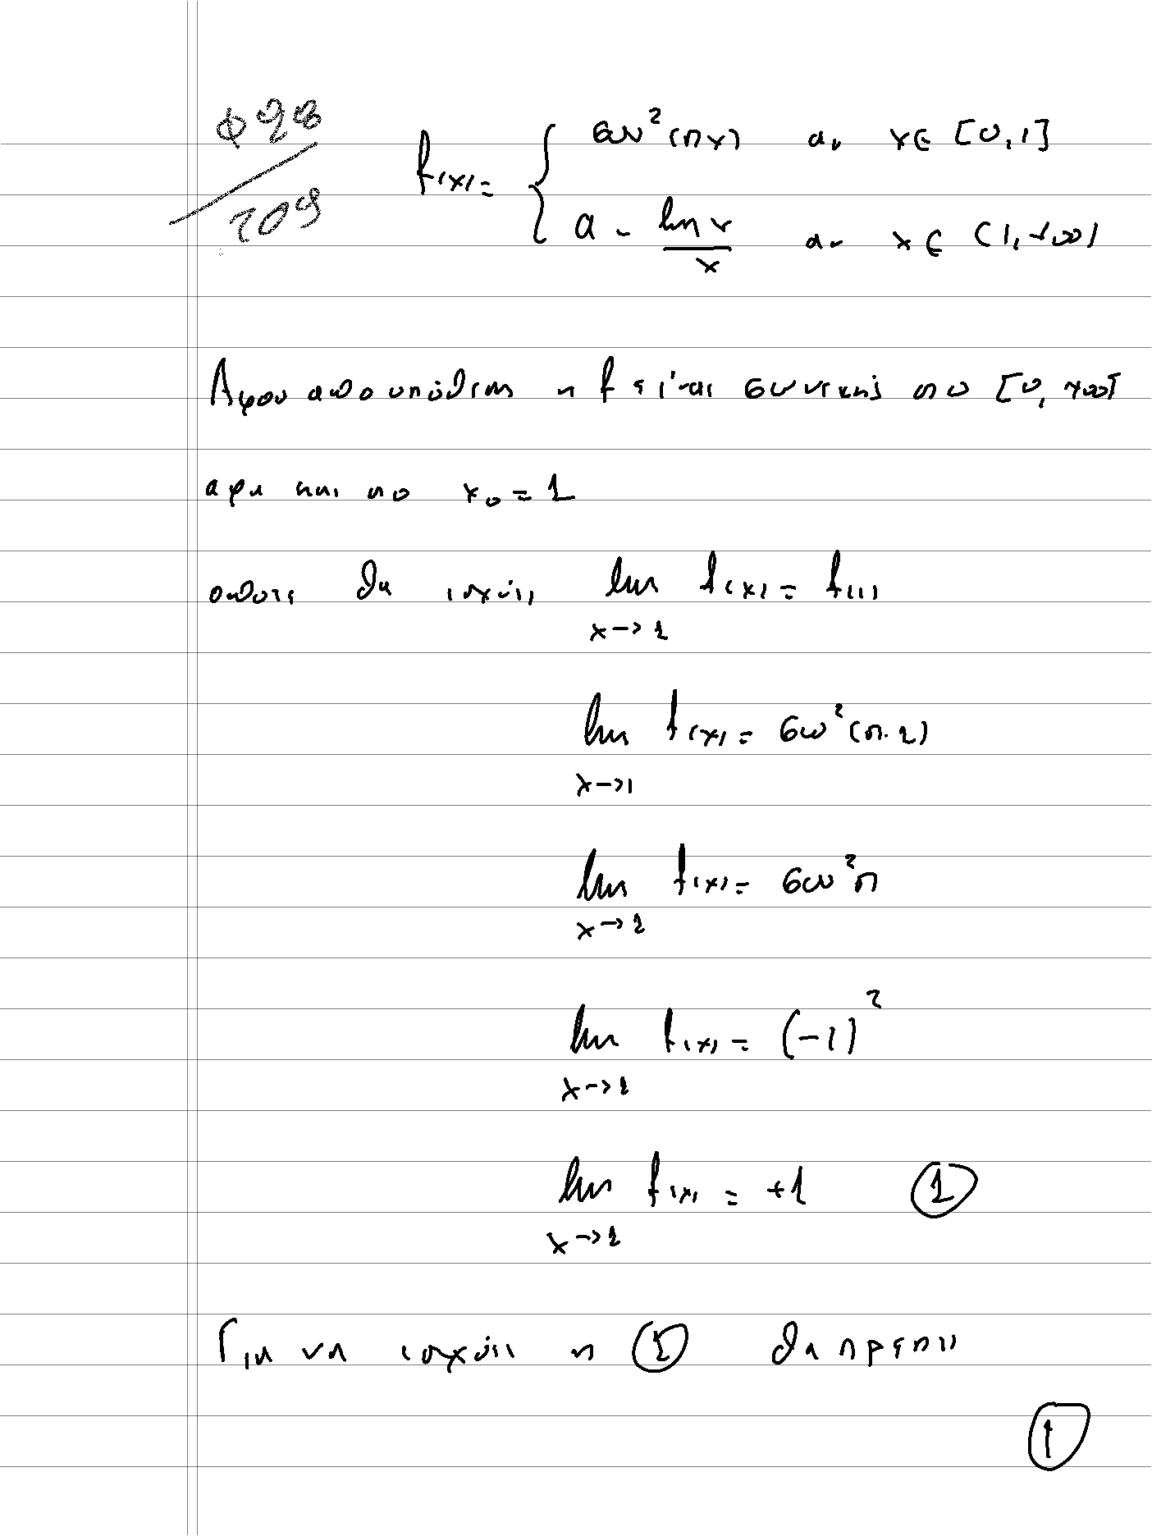 Φ 298
209
f(x) = { συν²(πx) αν x ∈ [0,1]
α - ln x / x αν x ∈ (1,+∞)
Αφου απο υποθεση η f ειναι συνεχης στο [0,+∞)
αρα και στο x₀ = 1
οποτε θα ισχυει lim f(x) = f(1)
x→1
lim f(x) = συν²(π·1)
x→1
lim f(x) = συν²π
x→1
lim f(x) = (-1)²
x→1
lim f(x) = +1 ①
x→1
Για να ισχυει η ① θα πρεπει
①